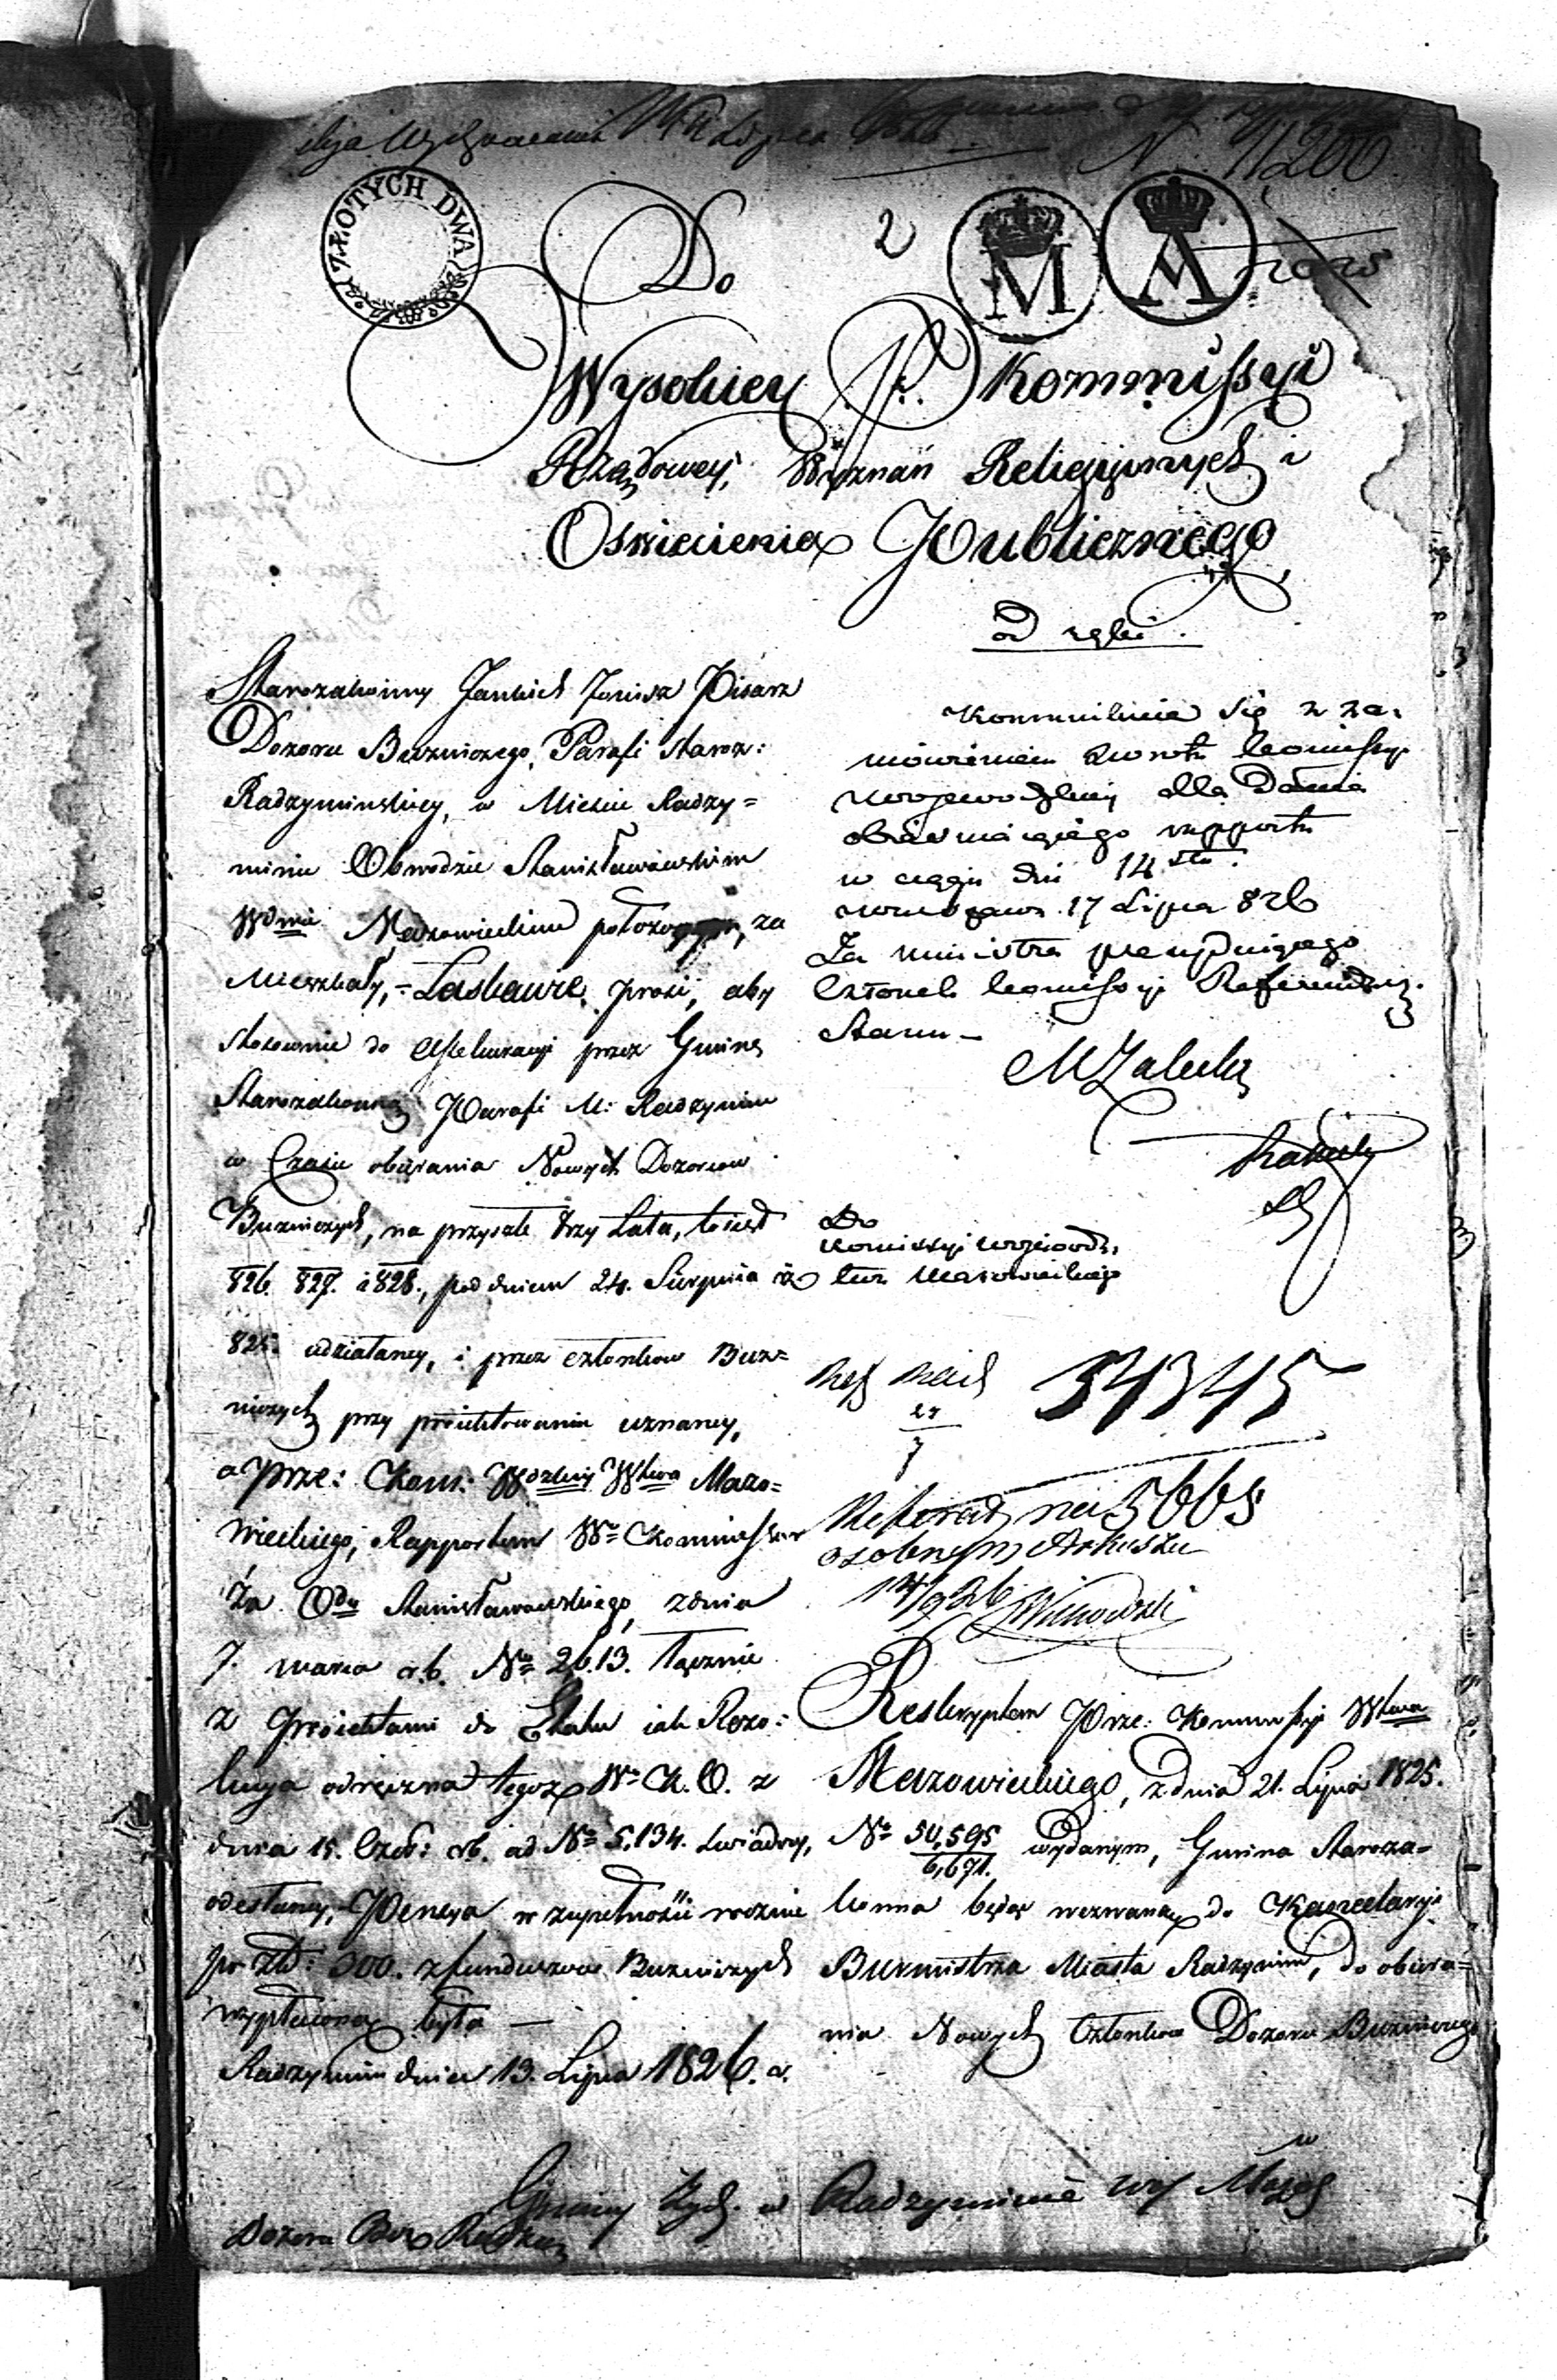 N 11200
ZŁOTYCH DWA
Do
2
M A
Wysokiey P. Kommissyi
Rządowey, Wyznań Religijnych i
Oświecenia Publicznego,
Starozakonny Jankiel Pisarz
Dozoru Bużniczego, Parafi Staroz:
Radzyminskiey, w Mieście Radzy=
minie Obwodzie Stanisławowskim
Wdztwie Mazowieckim położonym, za
Mieszkały, = Łaskawie prosi, aby
stosownie do assekuracyi przez Gminę
Starozakonną Parafi M: Radzymin
w Czasie obierania Nowych Dozorców
Bużniczych, na przyszłe trzy Lata, to iest
826. 827. i 828., pod dniem 24. Sierpnia
825. udziałaney, i przez członków Buż=
niczych przy proiektowaniu uznaney,
a prze: Kom: Wdzkiey Wtwa Mazo=
wieckiego, Rapportem Wo Kommissarza
Odu Stanisławowskiego, z dnia
7. marca r.b. No 2,613. łącznie
z proiektami do Etatu iak Rezo:
lucya odręczna tegoż Wo K. O. z
dnia 15. Czer: r.b. ad No 5,134. świadczy,
odesłaney, Pensya w zupełności rocznie
po złt: 300. z funduszów Bużniczych
wypłacona była —
Radzymin dnia 13. Lipca 1826. r.
Kommunikuie się z za=
mówieniem zwrotu Komissyi
Woiewodzkiey dla Dania
obiaśniaiącego rapportu
w ciągu dni 14stu.
w Warszawie 17 Lipca 826
Za Ministra prezyduiącego
Członek Komissyi Referendarz
Stanu —
MZaleski
Do
Komissyi Woiewódz,
twa Mazowieckiego
34345
Referat na 5668
osobnym Arkuszu
Reskryptem Prze: Kommissyi Wtwa
Mazowieckiego, z dnia 21. Lipca 1825.
No 50,595
6,671. wydanym, Gmina Staroza=
konna będąc wezwaną do Kancelaryi
Burmistrza Miasta Radzymin, do obiera=
nia Nowych Członków Dozoru Bużniczego
Gminy Żyd. w Radzyminie w Maz
Dozoru Boż